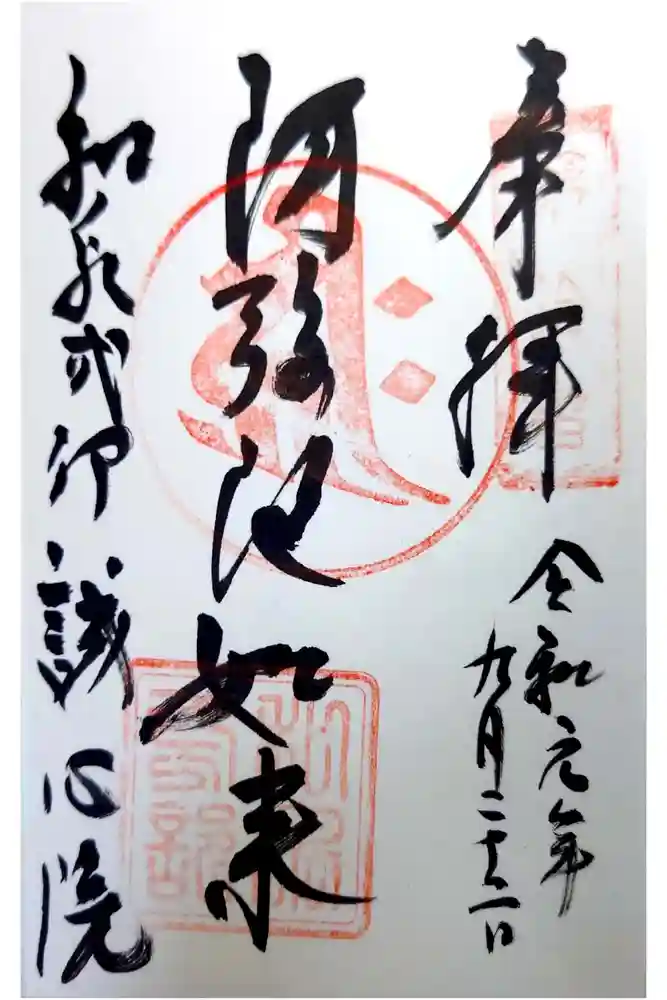 奉拝
令和元年
九月二十二日
阿弥陀如来
和泉式部 誠心院